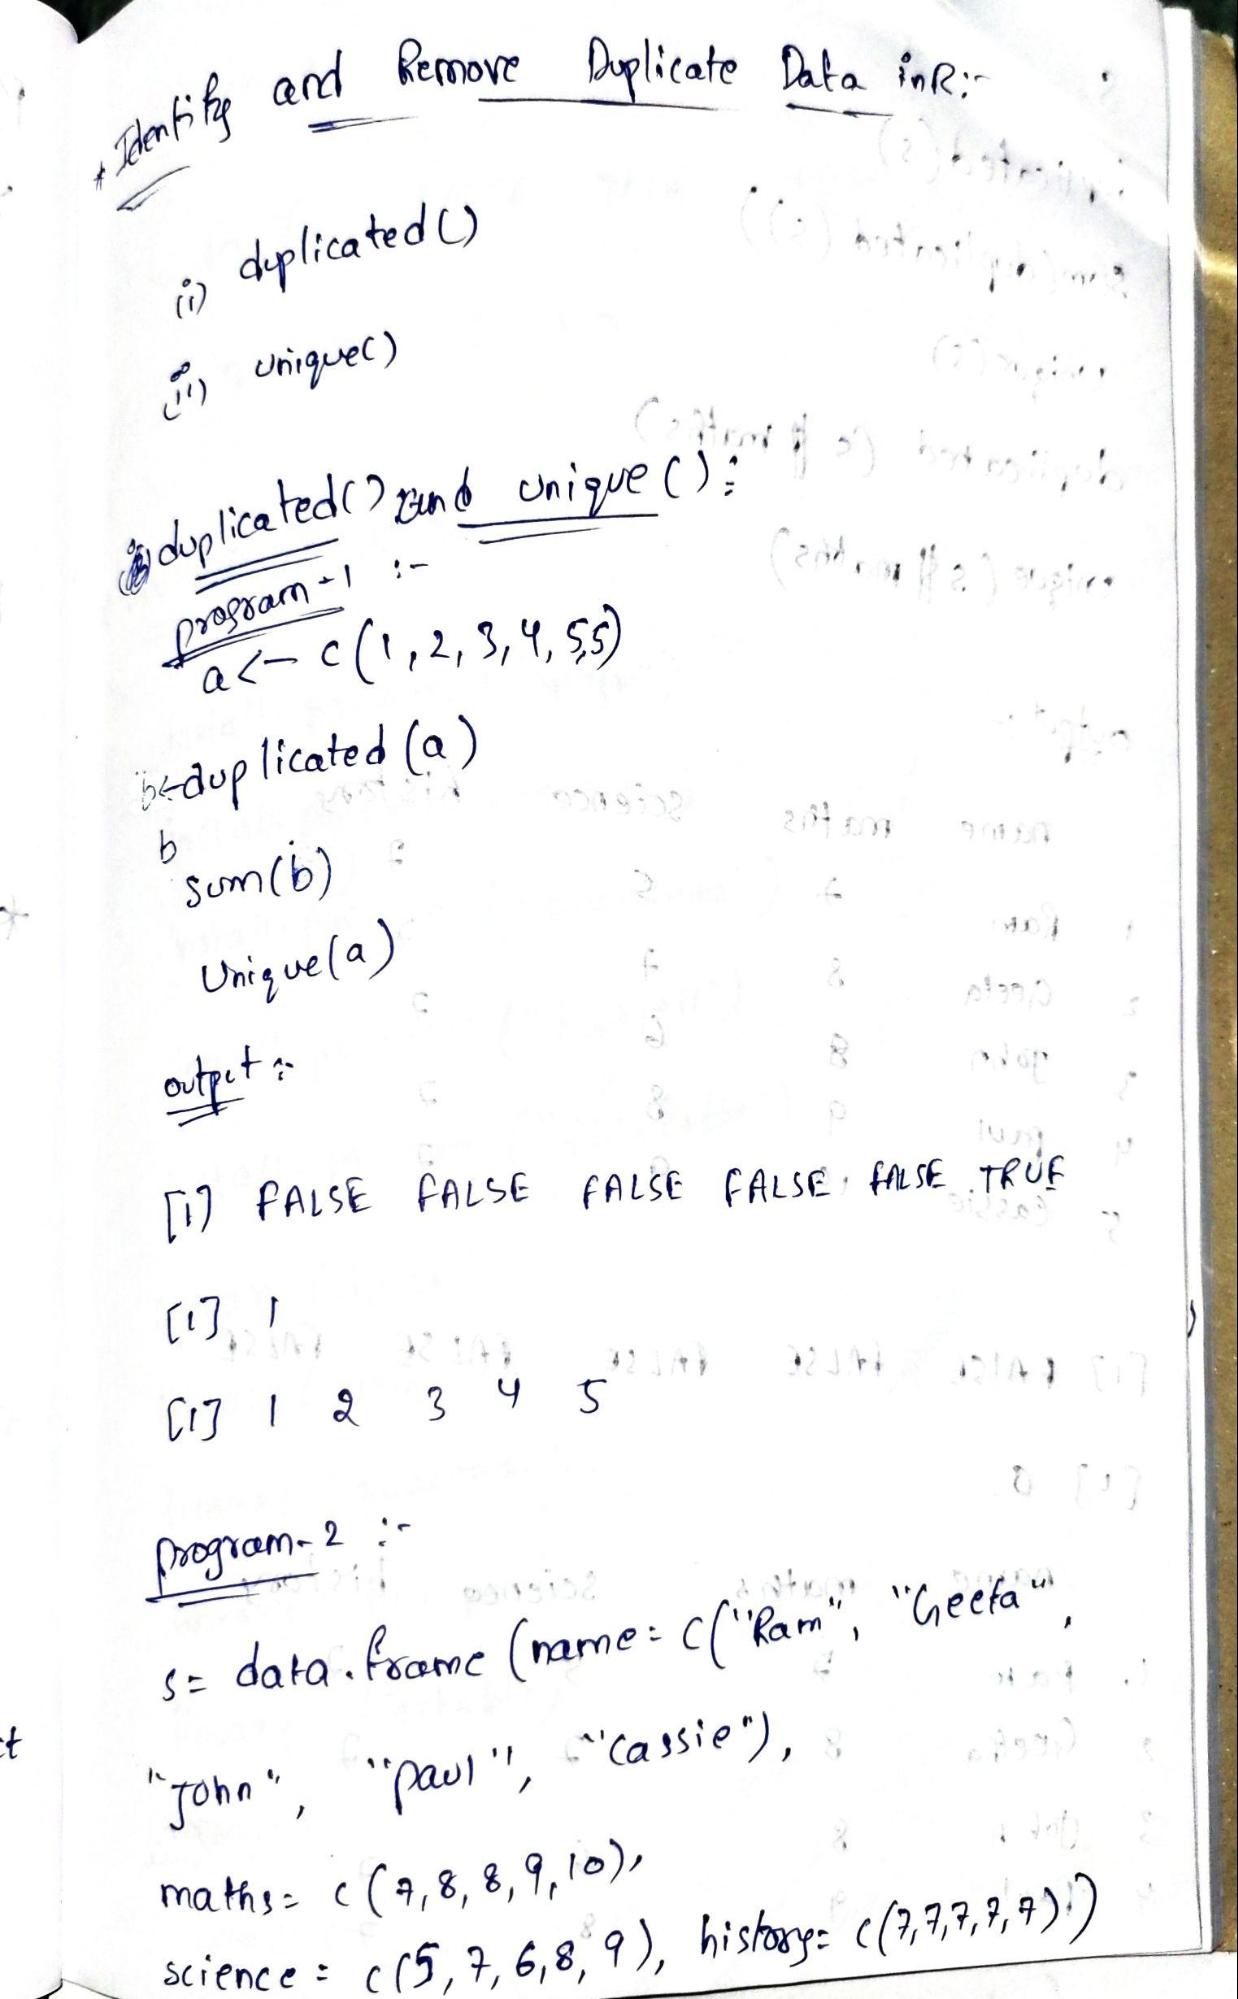 * Identify and Remove Duplicate Data in R:-
(i) duplicated()
(ii) unique()
duplicated() and unique():
program-1 :-
a<- c(1,2,3,4,5,5)
b<-duplicated(a)
b
sum(b)
unique(a)
output :-
[1] FALSE FALSE FALSE FALSE FALSE TRUE
[1] 1
[1] 1 2 3 4 5
program-2 :-
s= data.frame (name= c("Ram", "Geeta",
"John", "paul", "cassie"),
maths= c(7,8,8,9,10),
science = c(5,7,6,8,9), history= c(7,7,7,7,7))